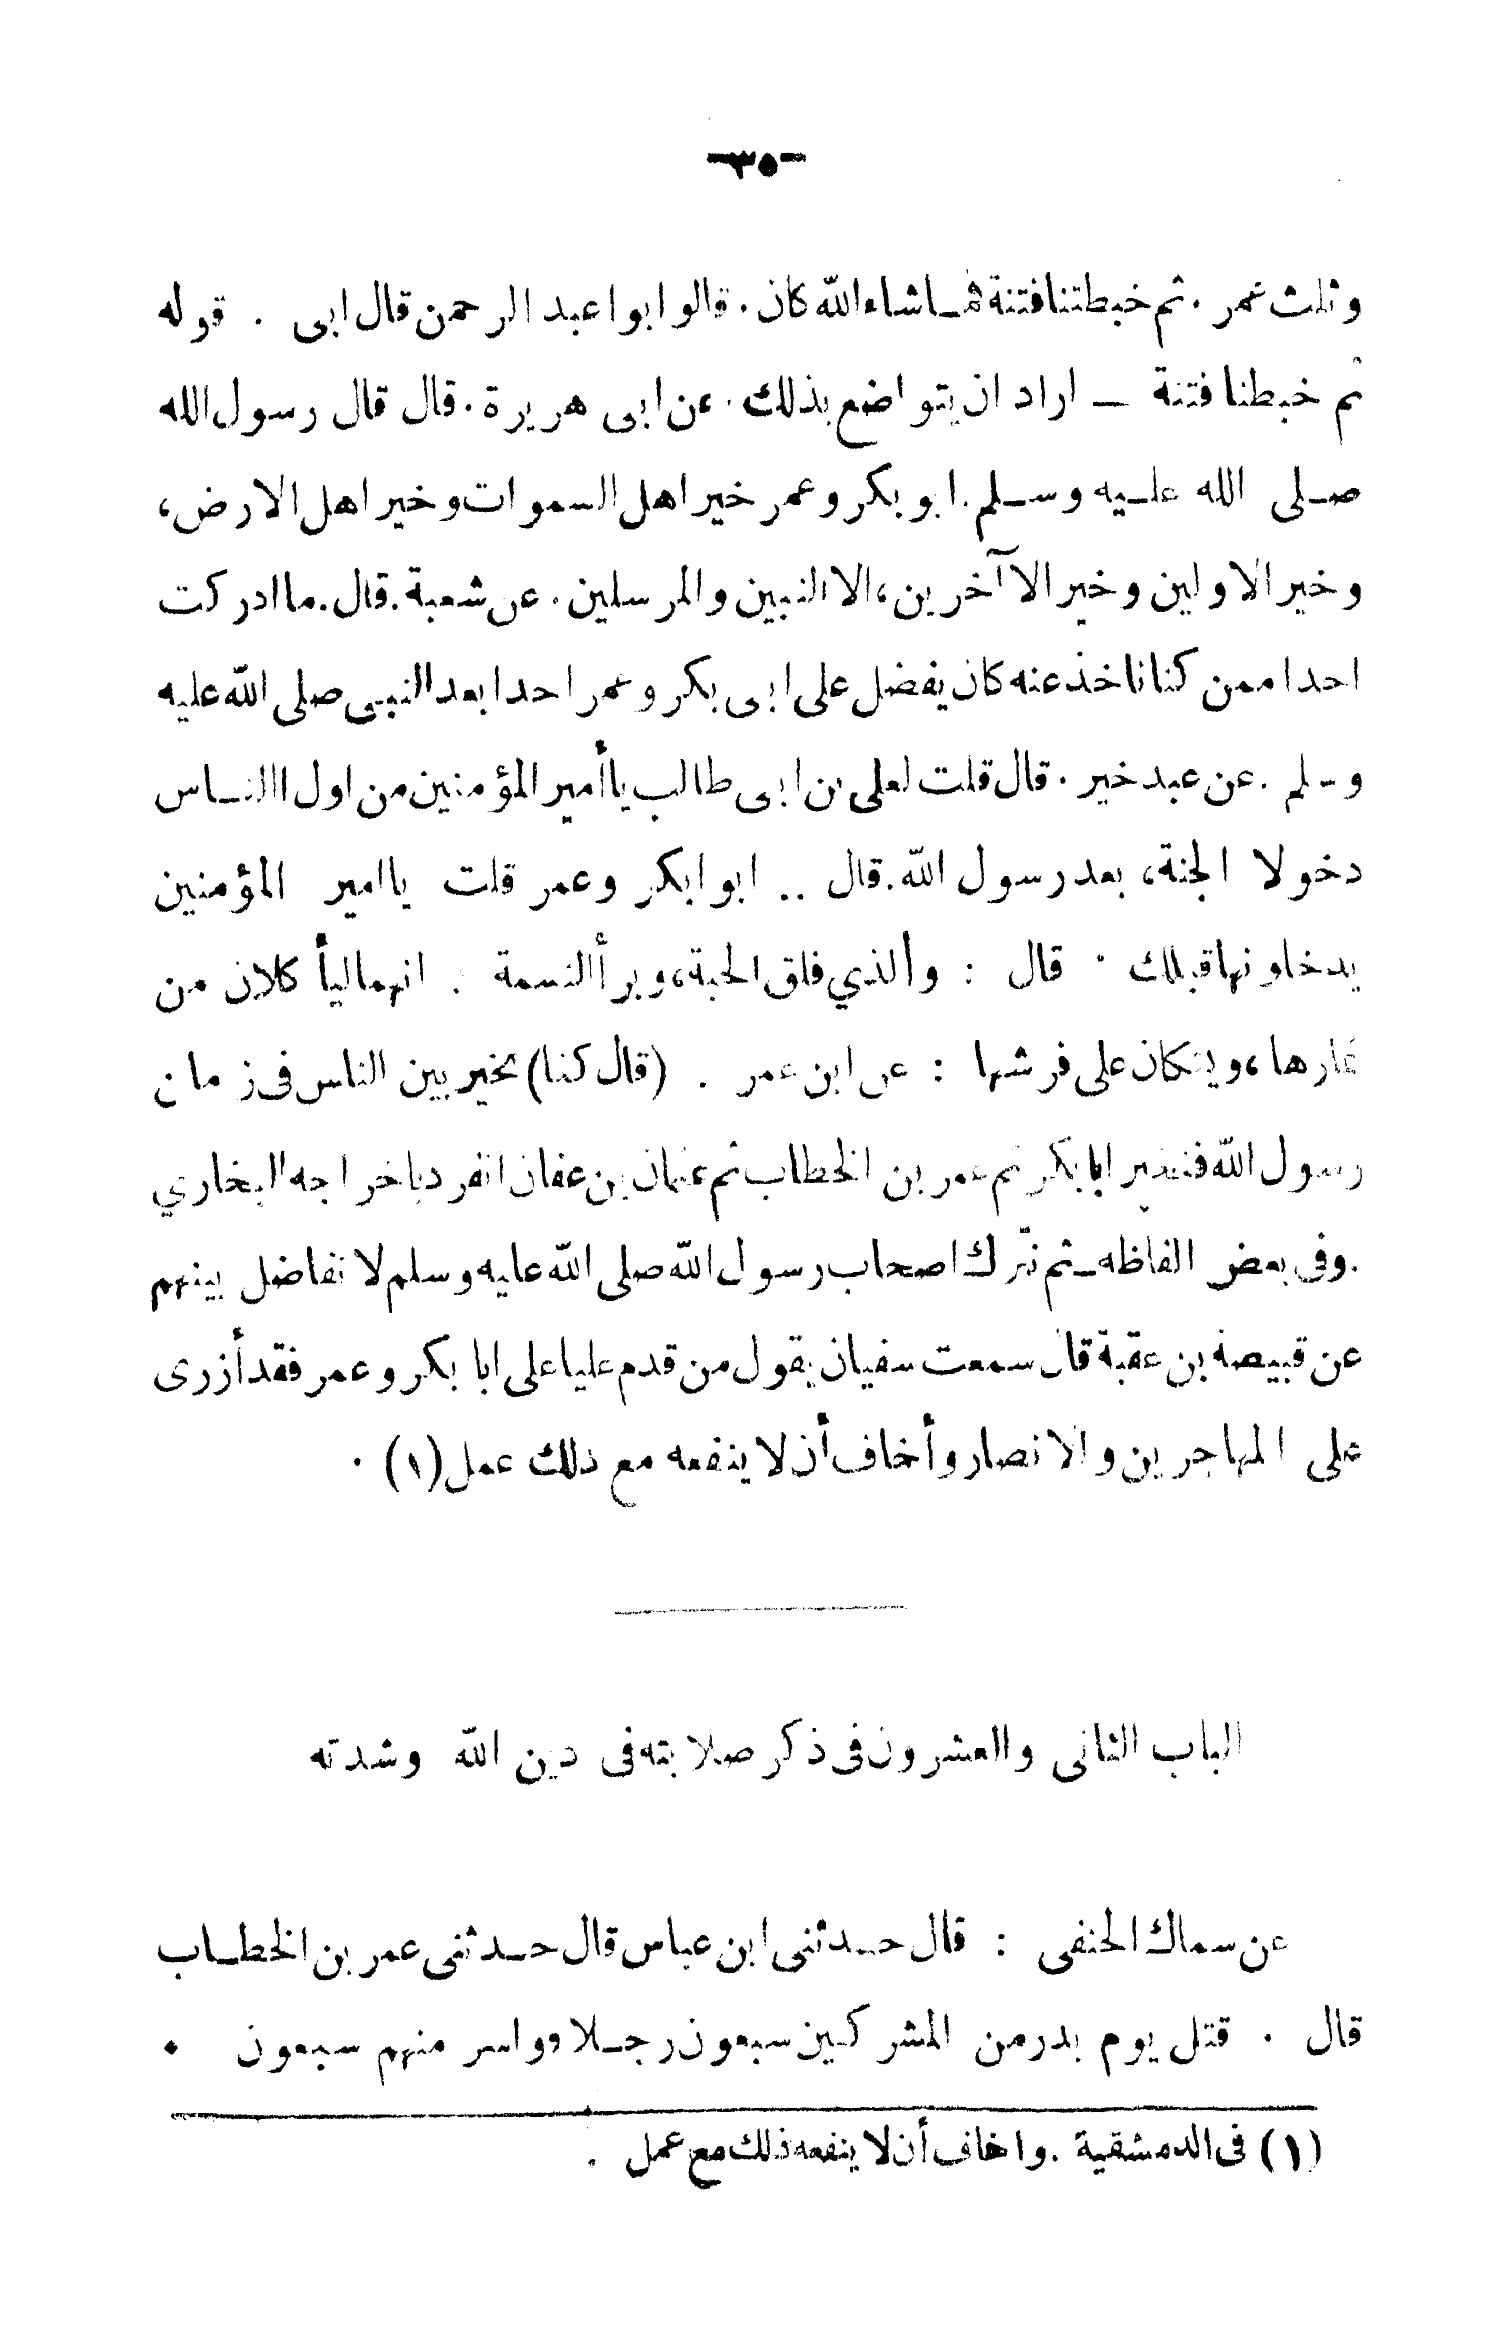 -٣٥-
وثلث عمر . ثم خبطتنا فتنة فما شاء الله كان . قالوا ابوا عبد الرحمن قال ابى . قوله
ثم خبطنا فتنة — اراد ان يتواضع بذلك . عن ابى هريرة . قال قال رسول الله
صلى الله عليه وسلم . ابو بكر وعمر خير اهل السموات وخير اهل الارض ،
وخير الاولين وخير الاآخرين ، الا النبين والمرسلين . عن شعبة . قال . ما ادركت
احدا ممن كنا ناخذ عنه كان يفضل على ابى بكر وعمر احدا بعد النبى صلى الله عليه
وسلم . عن عبد خير . قال قلت لعلى بن ابى طالب يا أمير المؤمنين من اول االناس
دخولا الجنة ، بعد رسول الله . قال .. ابو ابكر وعمر قلت يا امير المؤمنين
يدخلونها قبلك . قال : وألذي فلق الحبة ، وبرأ النسمة . انهما ليأكلان من
ثمارها ، ويتكان على فرشها : عن ابن عمر . (قال كنا) نخير بين الناس فى زمان
رسول الله فنخير ابا بكر ثم عمر بن الخطاب ثم عثمان بن عفان انفرد باخراجه البخاري
. وفى بعض الفاظه — ثم نترك اصحاب رسول الله صلى الله عليه وسلم لا نفاضل بينهم
عن قبيصة بن عقبة قال سمعت سفيان يقول من قدم عليا على ابا بكر وعمر فقد أزرى
على المهاجرين والانصار وأخاف أن لا ينفعه مع ذلك عمل (١) .
الباب الثانى واالعشرون فى ذكر صلابته فى دين الله وشدته
عن سماك الحنفى : قال حدثنى ابن عباس قال حدثنى عمر بن الخطاب
قال . قتل يوم بدر من المشركين سبعون رجلا وواسر منهم سبعون .
(١) فى الدمشقية . واخاف أن لا ينفعه ذلك مع عمل .